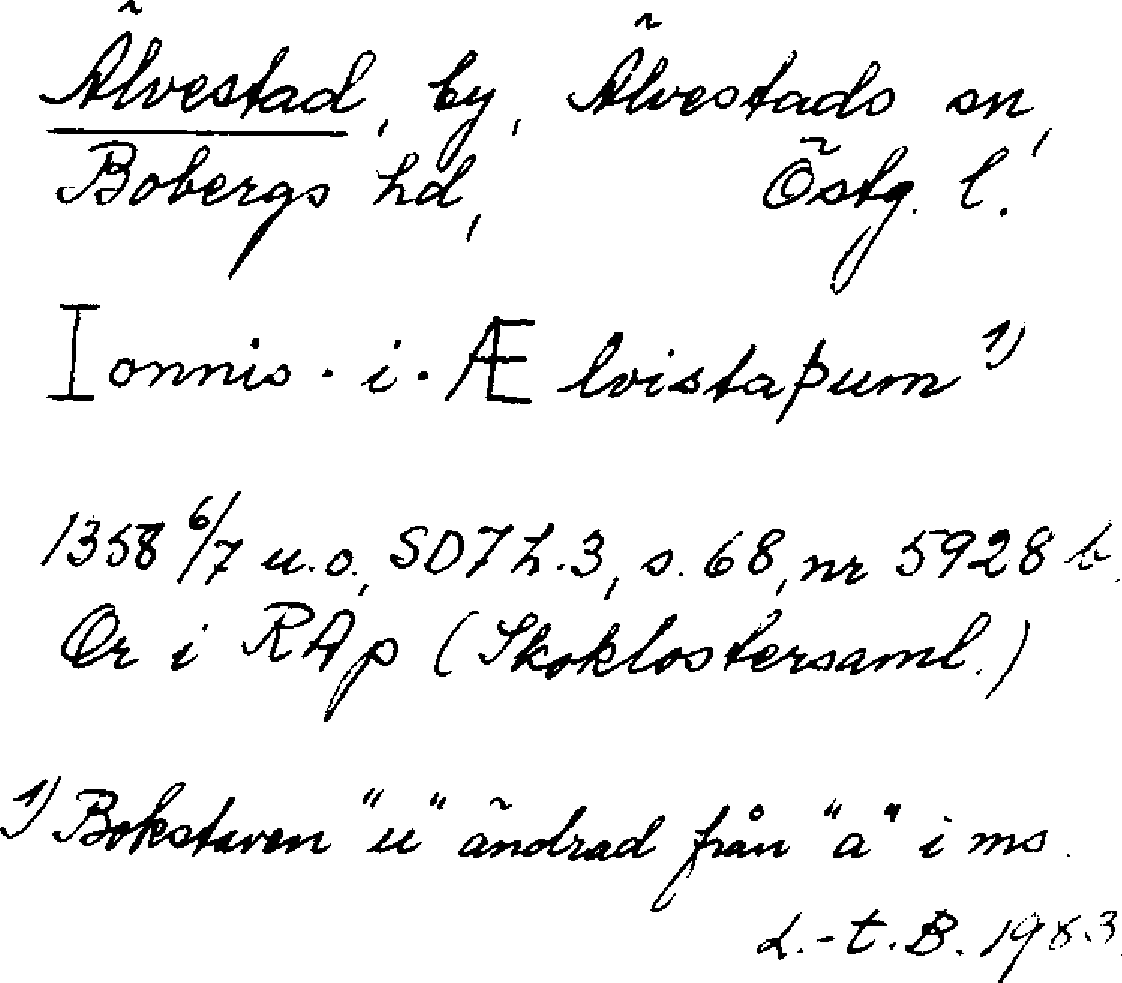 Älvestad, by, Älvestads sn,
Bobergs hd, Östg. l.
Ionnis · i · Ælvistaþum 1)
1358 6/7 u.o., SD7 h.3, s. 68, nr 5928 b.
Or i RAp (Skoklostersaml.)
1) Bokstaven "u" ändrad från "a" i ms.
L.-t. B. 1983